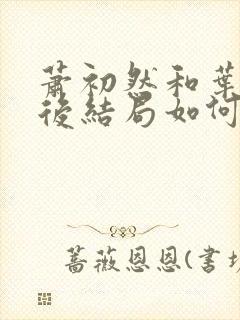 蕭初然和葉
後結局如何
薔薇恩恩(書坊